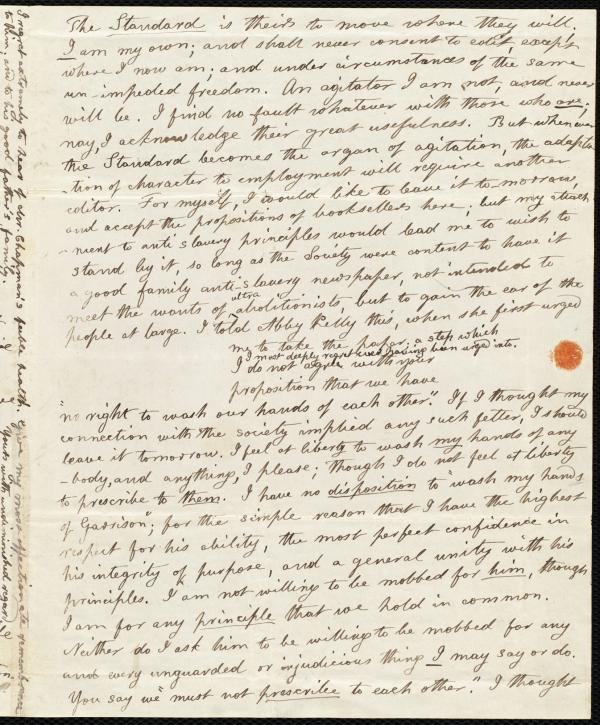 The Standard is theirs to move where they will;
I am my own; and shall never consent to edit, except
where I now am; and under circumstances of the same
un-impeded freedom. An agitator I am not, and never
will be. I find no fault whatever with those who are;
nay, I acknowledge their great usefulness. But whenever
the Standard becomes the organ of agitation, the adapta
-tion of character to employment will require another
editor. For myself, I would like to leave it to-morrow,
and accept the propositions of booksellers here; but my attach
-ment to anti slavery principles would lead me to wish to
stand by it, so long as the Society were content to have it
a good family anti-slavery newspaper, not intended to
meet the wants of ultra abolitionists, but to gain the ear of the
people at large. I told Abby Kelly this, when she first urged
me to take the paper; a step which
I most deeply regret ever having been urged into.
I do not agree with your
proposition that we have
"no right to wash our hands of each other". If I thought my
connection with the society implied any such fetter, I should
leave it tomorrow. I feel at liberty to wash my hands of any
-body, and anything, I please; though I do not feel at liberty
to prescribe to them. I have no disposition to "wash my hands
of Garrison"; for the simple reason that I have the highest
respect for his ability, the most perfect confidence in
his integrity of purpose, and a general unity with his
principles. I am not willing to be mobbed for him, though
I am for any principle that we hold in common.
Neither do I ask him to be willing to be mobbed for any
and every unguarded or injudicious thing I may say or do.
You say we "must not prescribe to each other." I thought
I regret extremely to hear of Mr. Chapman's feeble health. Give my most affectionate remembrance
to him, and to his good father's family.
Yours with undiminished regard